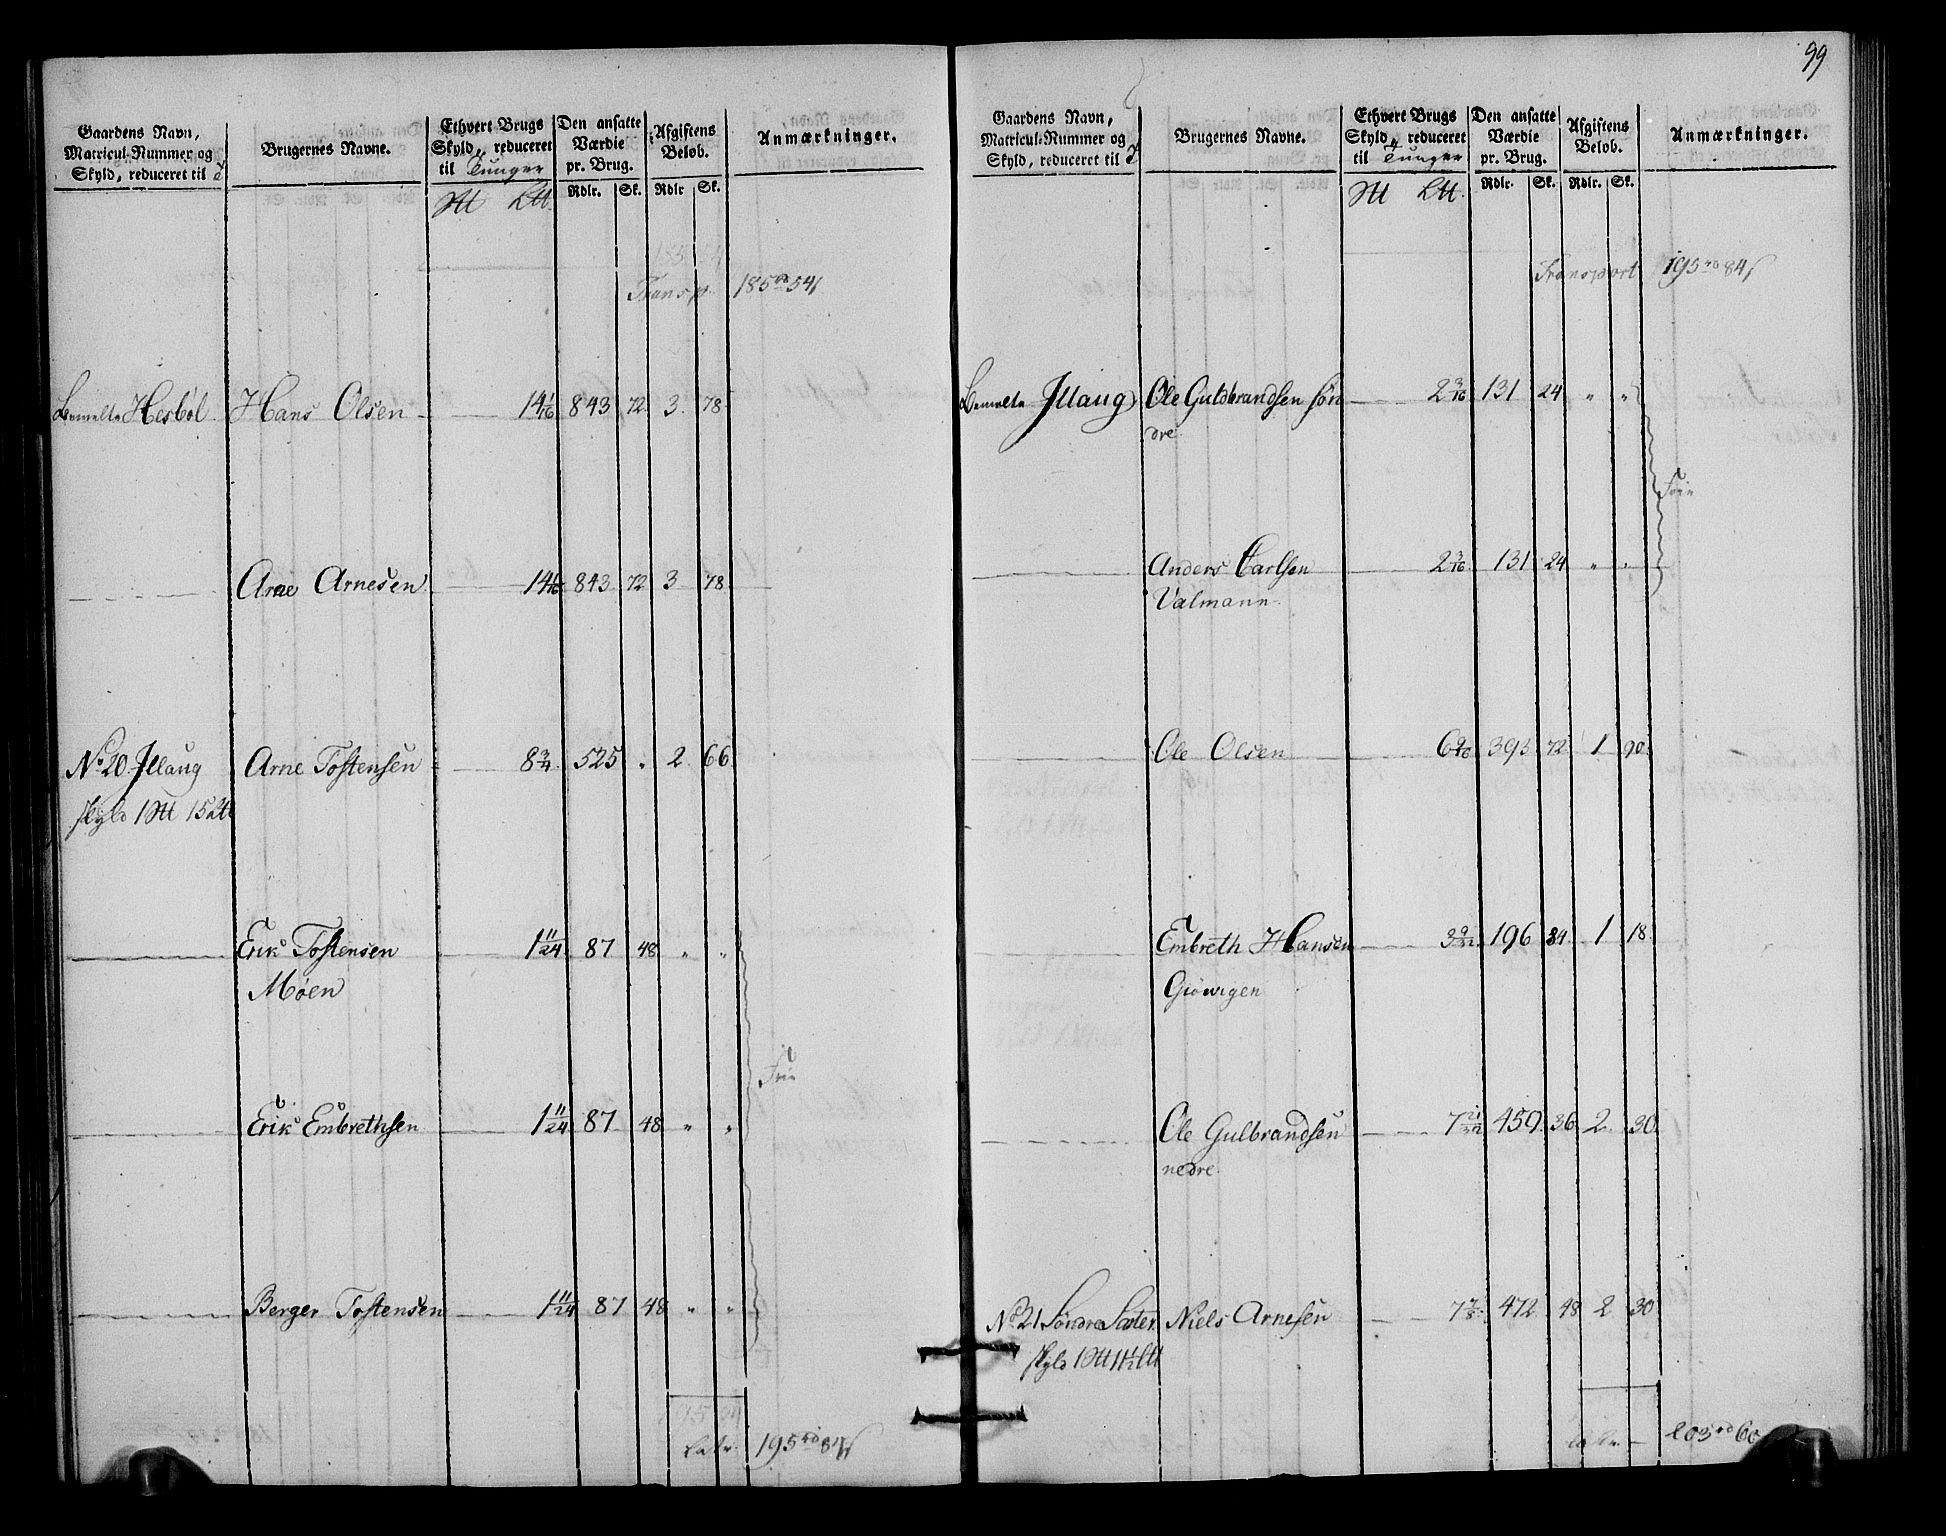 Gaardens Navn, Matricul-Nummer og Skyld, reduceret til
Brugernes Navne.
Ethvert Brugs Skyld, reduceret til Tunger
Den ansatte Værdie pr. Brug.
Afgiftens Beløb.
Anmærkninger.
Rdlr. Sk. Rdlr Sk.
Transp. 185 rd 54 s
Bemelte Hesbøl Hans Olsen 14 1/16 843 72 3 78
Arne Arnesen 14 1/16 843 72 3 78
No 20 Illaug Arne Tostensen 8 3/4 525 " 2 66
skyld 1
Erik Tostensen 1 11/24 87 48 " "
Møen
Frie
Erik Embrethsen 1 11/24 87 48 " "
Berger Tostensen 1 11/24 87 48 " "
Latr. 195 rd 84 s
99
Gaardens Navn, Matricul-Nummer og Skyld, reduceret til
Brugernes Navne.
Ethvert Brugs Skyld, reduceret til Tunger
Den ansatte Værdie pr. Brug.
Afgiftens Beløb.
Anmærkninger.
Rdlr. Sk. Rdlr. Sk.
Transport 195 rd 84 s
Bemelte Illaug Ole Guldbrandsen søn 2 3/16 131 24 " "
dre
Frie
Anders Carlsen 2 3/16 131 24 " "
Valmann
Ole Olsen 6 9/16 393 72 1 90
Embreth Hansen 3 9/32 196 84 1 18
Giøvigen
Ole Gulbrandsen 7 21/32 459 36 2 30
nedre
No 21 Søndre Sæter Niels Arnesen 7 7/8 472 48 2 30
skyld 1
Latr. 203 rd 60